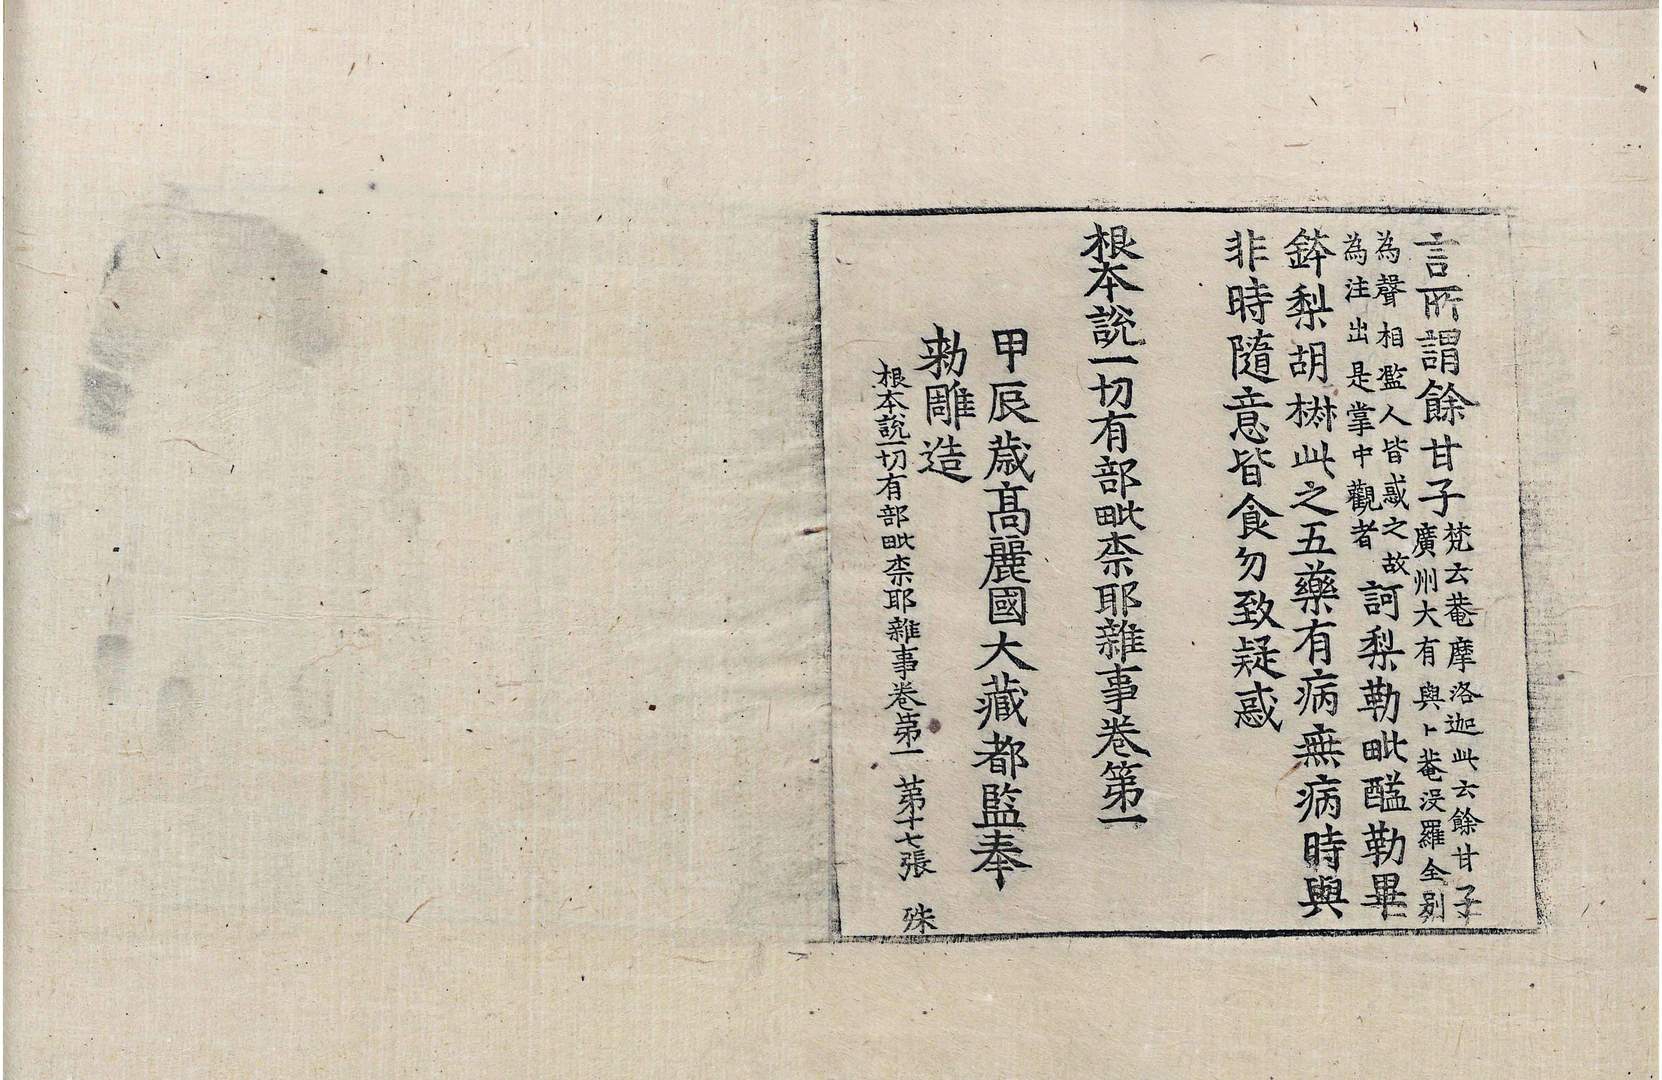 言所謂餘甘子梵云菴摩洛迦此云餘甘子
廣州大有與上菴没羅全別
為聲相濫人皆惑之故
為注出是掌中觀者訶梨勒毗醯勒畢
鉢梨胡椒此之五藥有病無病時與
非時隨意皆食勿致疑惑
根本說一切有部毗柰耶雜事卷第一
甲辰歲高麗國大藏都監奉
勑雕造
根本說一切有部毗柰耶雜事卷第一 第十七張 殊